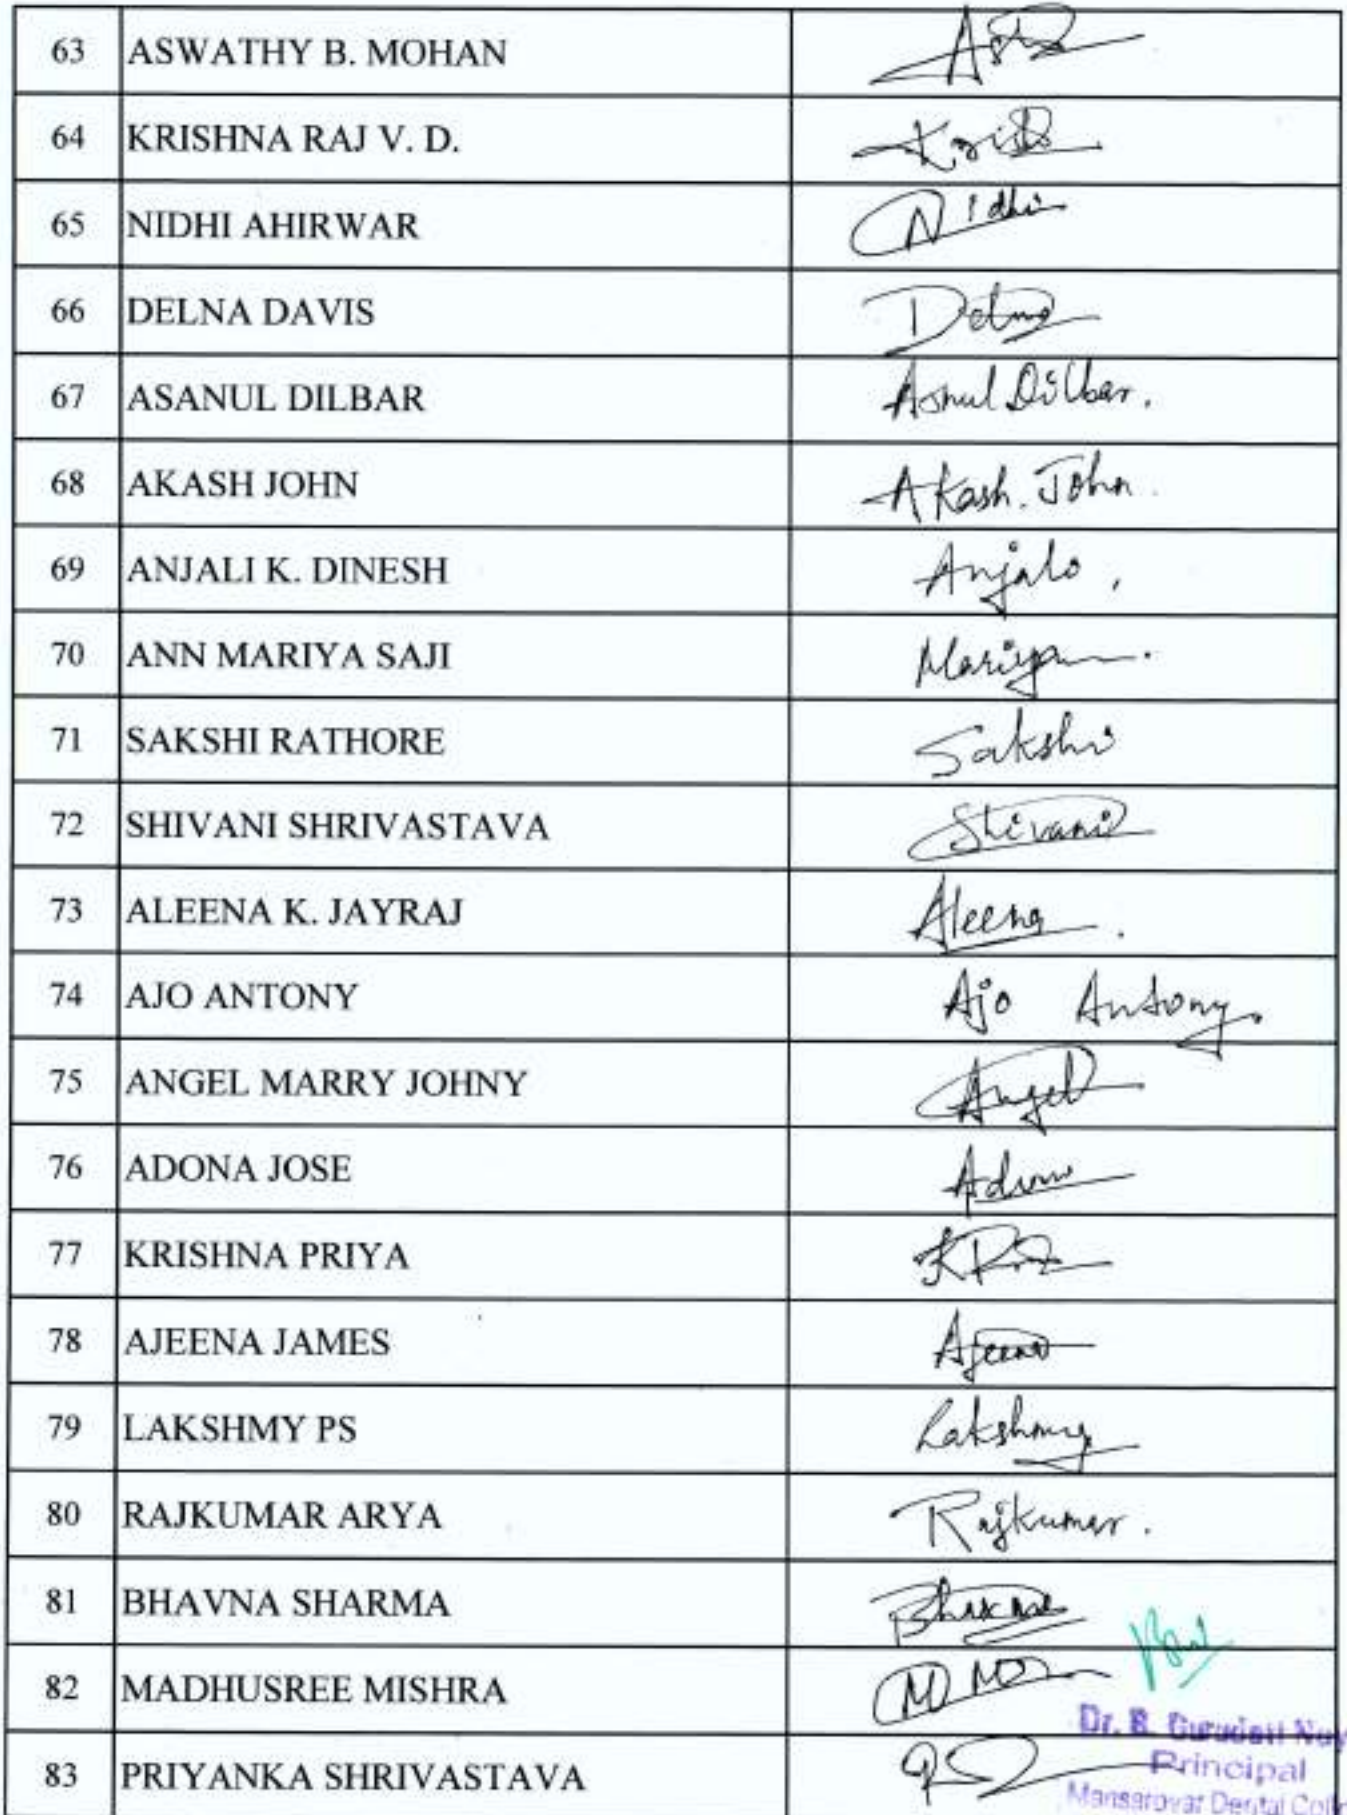 63 ASWATHY B. MOHAN
64 KRISHNA RAJ V. D. Krish
65 NIDHI AHIRWAR Nidhi
66 DELNA DAVIS Delna
67 ASANUL DILBAR Asnul Dilbar.
68 AKASH JOHN Akash. John.
69 ANJALI K. DINESH Anjali,
70 ANN MARIYA SAJI Mariya
71 SAKSHI RATHORE Sakshi
72 SHIVANI SHRIVASTAVA Shivani
73 ALEENA K. JAYRAJ Aleena.
74 AJO ANTONY Ajo Antony.
75 ANGEL MARRY JOHNY Angel
76 ADONA JOSE
77 KRISHNA PRIYA
78 AJEENA JAMES Ajeena
79 LAKSHMY PS Lakshmy
80 RAJKUMAR ARYA Rajkumar.
81 BHAVNA SHARMA
82 MADHUSREE MISHRA
Dr. B.
83 PRIYANKA SHRIVASTAVA
Principal
Mansarovar Dental